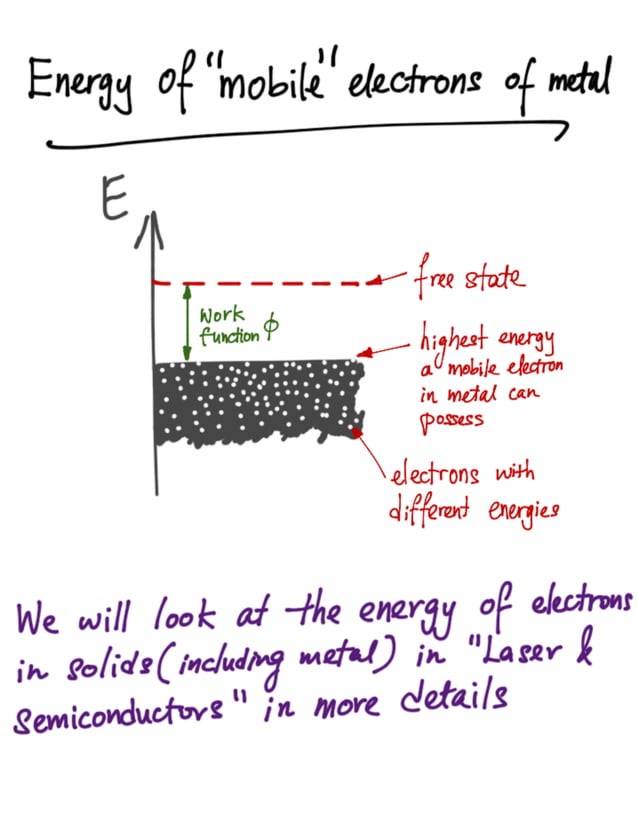 Energy of "mobile" electrons of metal
E
free state
Work
function ϕ
highest energy
a mobile electron
in metal can
possess
electrons with
different energies
We will look at the energy of electrons
in solids (including metal) in "Laser &
Semiconductors" in more details